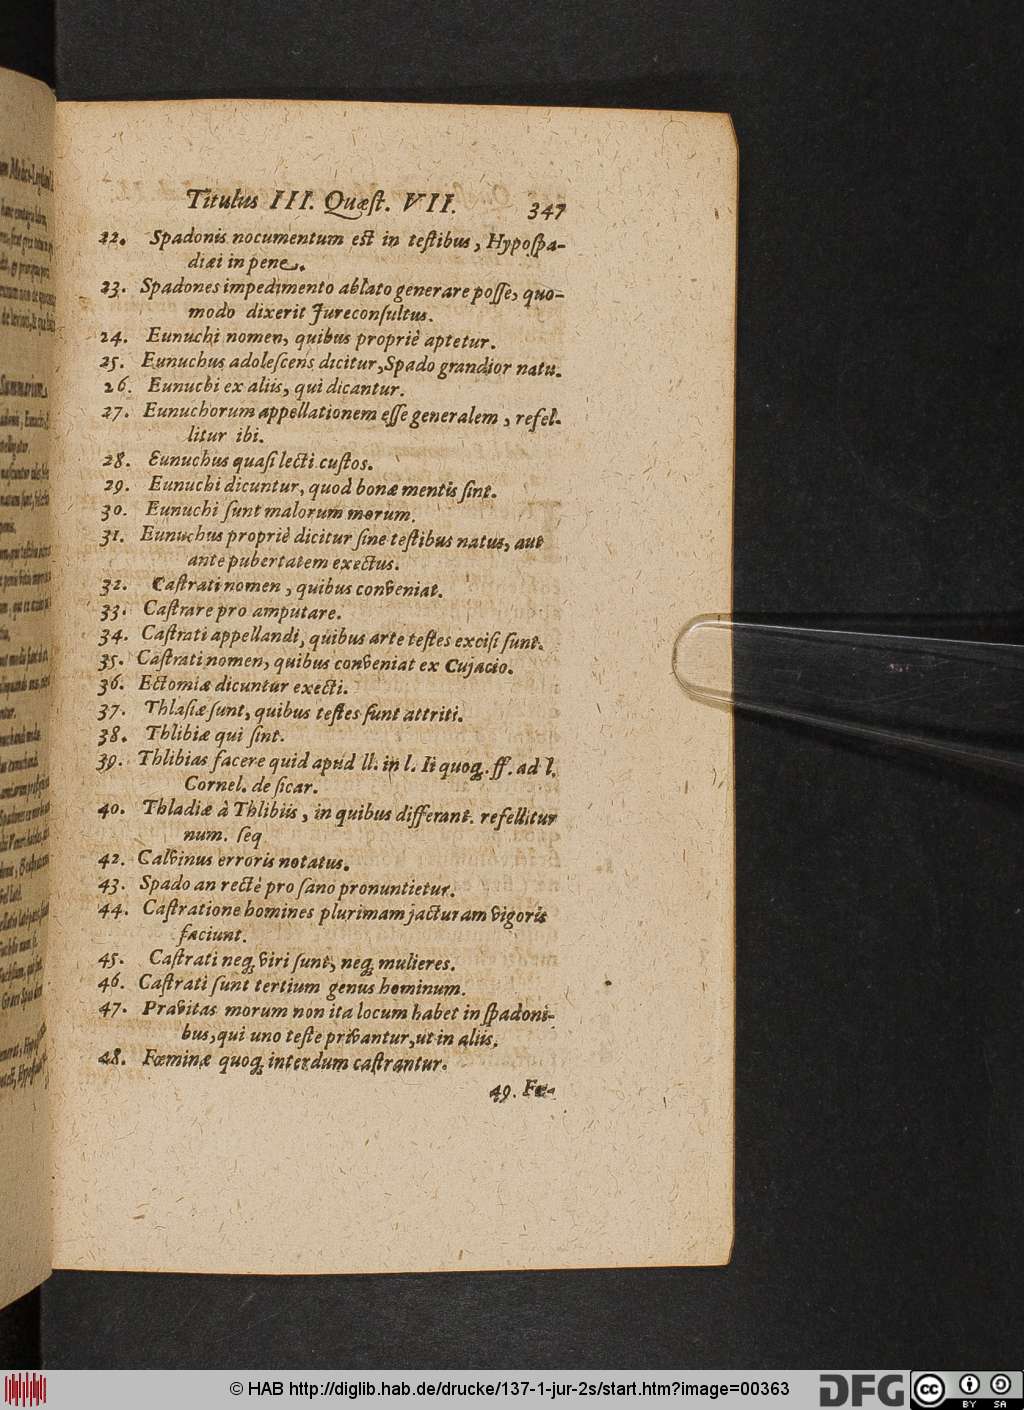 Titulus III. Quæſt. VII. 347
22. Spadonis nocumentum eſt in teſtibus, Hypoſpa-
diæi in pene.
23. Spadones impedimento ablato generare poſſe, quo-
modo dixerit Jureconſultus.
24. Eunuchi nomen, quibus propriè aptetur.
25. Eunuchus adoleſcens dicitur, Spado grandior natu.
26. Eunuchi ex aliis, qui dicantur.
27. Eunuchorum appellationem eſſe generalem, refel-
litur ibi.
28. Eunuchus quaſi lecti cuſtos.
29. Eunuchi dicuntur, quod bonæ mentis ſint.
30. Eunuchi ſunt malorum morum.
31. Eunuchus propriè dicitur ſine teſtibus natus, aut
ante pubertatem exectus.
32. Caſtrati nomen, quibus conveniat.
33. Caſtrare pro amputare.
34. Caſtrati appellandi, quibus arte teſtes exciſi ſunt.
35. Caſtrati nomen, quibus conveniat ex Cujacio.
36. Ectomiæ dicuntur execti.
37. Thlaſiæ ſunt, quibus teſtes ſunt attriti.
38. Thlibiæ qui ſint.
39. Thlibias facere quid apud ll. in l. Ii quoq. ff. ad l.
Cornel. de ſicar.
40. Thladiæ à Thlibiis, in quibus differant. refellitur
num. ſeq
42. Calvinus erroris notatus.
43. Spado an rectè pro ſano pronuntietur.
44. Caſtratione homines plurimam jacturam vigoris
faciunt.
45. Caſtrati neq; viri ſunt, neq; mulieres.
46. Caſtrati ſunt tertium genus hominum.
47. Pravitas morum non ita locum habet in ſpadoni-
bus, qui uno teſte privantur, ut in aliis.
48. Fœminæ quoq; interdum caſtrantur.
49. Fœ-
© HAB http://diglib.hab.de/drucke/137-1-jur-2s/start.htm?image=00363
DFG
cc
BY SA